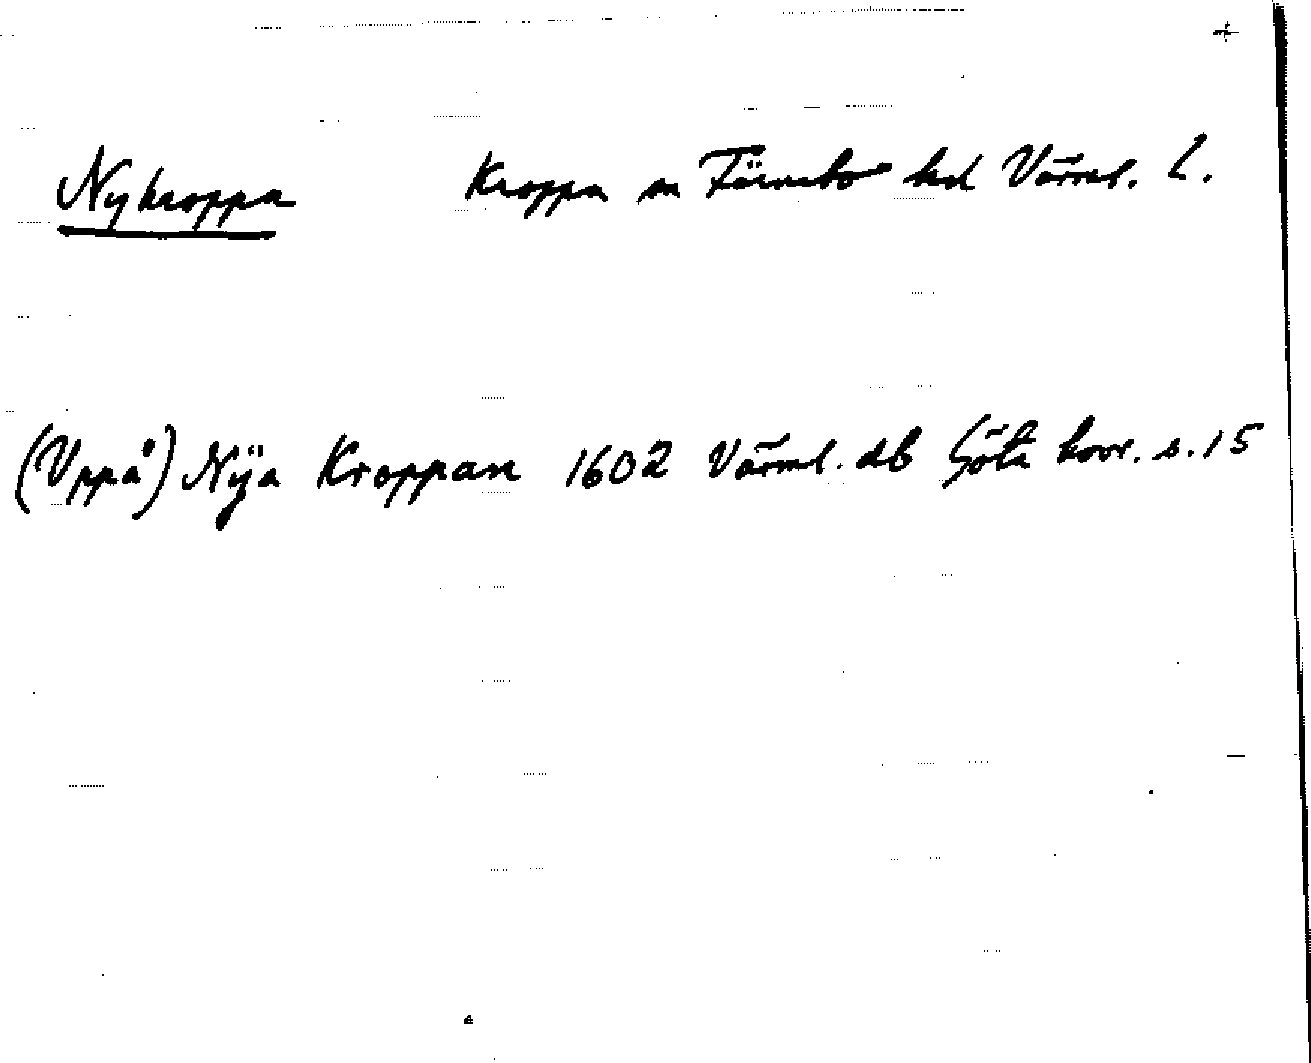 Nykroppa Kroppa sn Färnebo hd Värml. L.
(Vppå) Nÿa Kroppan 1602 Värml. db Göta hovr. s. 15